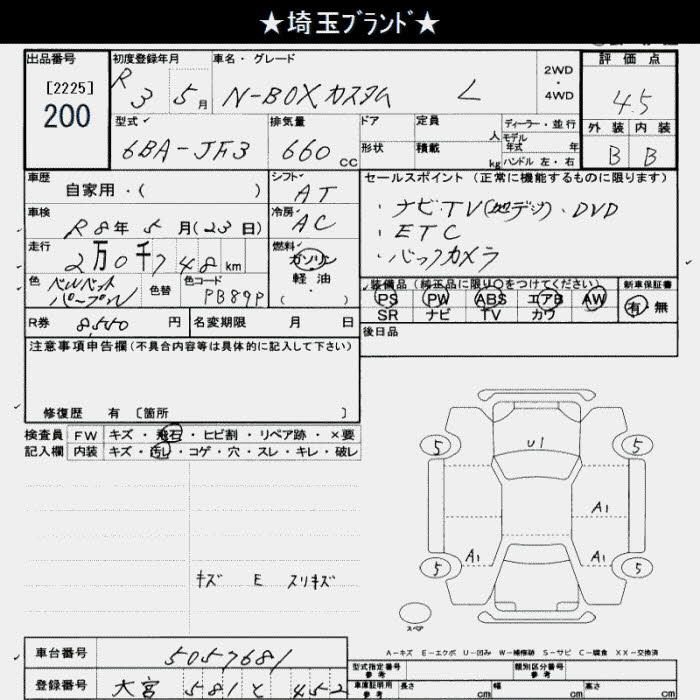 ★埼玉ﾌﾞﾗﾝﾄﾞ★
出品番号
[2225]
200
初度登録年月
R3 5月
車名・グレード
N-BOXカスタム L
2WD
・
4WD
評価点
4.5
外装 内装
B B
型式
6BA-JF3
排気量
660 cc
ドア
形状
定員
人
積載
kg
ディーラー・並行
モデル
年式 年
ハンドル 左・右
車歴
自家用・( )
シフト
AT
車検
R8年5月(23日)
冷房
AC
走行
2万0千748km
燃料
ガソリン
軽油
( ・ )
色
ベルベット
パープル
色替
色コード
PB89P
R券 8,540円
名変期限 月 日
セールスポイント(正常に機能するものに限ります)
・ナビ・TV(地デジ)・DVD
・ETC
・バックカメラ
装備品(純正品に限り○をつけてください)
PS PW ABS エアB AW
SR ナビ TV カワ
新車保証書
有・無
後日品
注意事項申告欄(不具合内容等は具体的に記入して下さい)
修復歴 有 〔箇所 〕
検査員
記入欄
FW キズ・飛石・ヒビ割・リペア跡・×要
内装 キズ・汚れ・コゲ・穴・スレ・キレ・破レ
U1
5 5
A1
A1 A1
5 5
キズ E スリキズ
スペア
A-キズ E-エクボ U-凹み W-補修跡 S-サビ C-腐食 XX-交換済
車台番号
5057681
登録番号
大宮 581 と 452
型式指定番号
参考
類別区分番号
参考
車庫証明用
参考
長さ cm
幅 cm
高さ cm